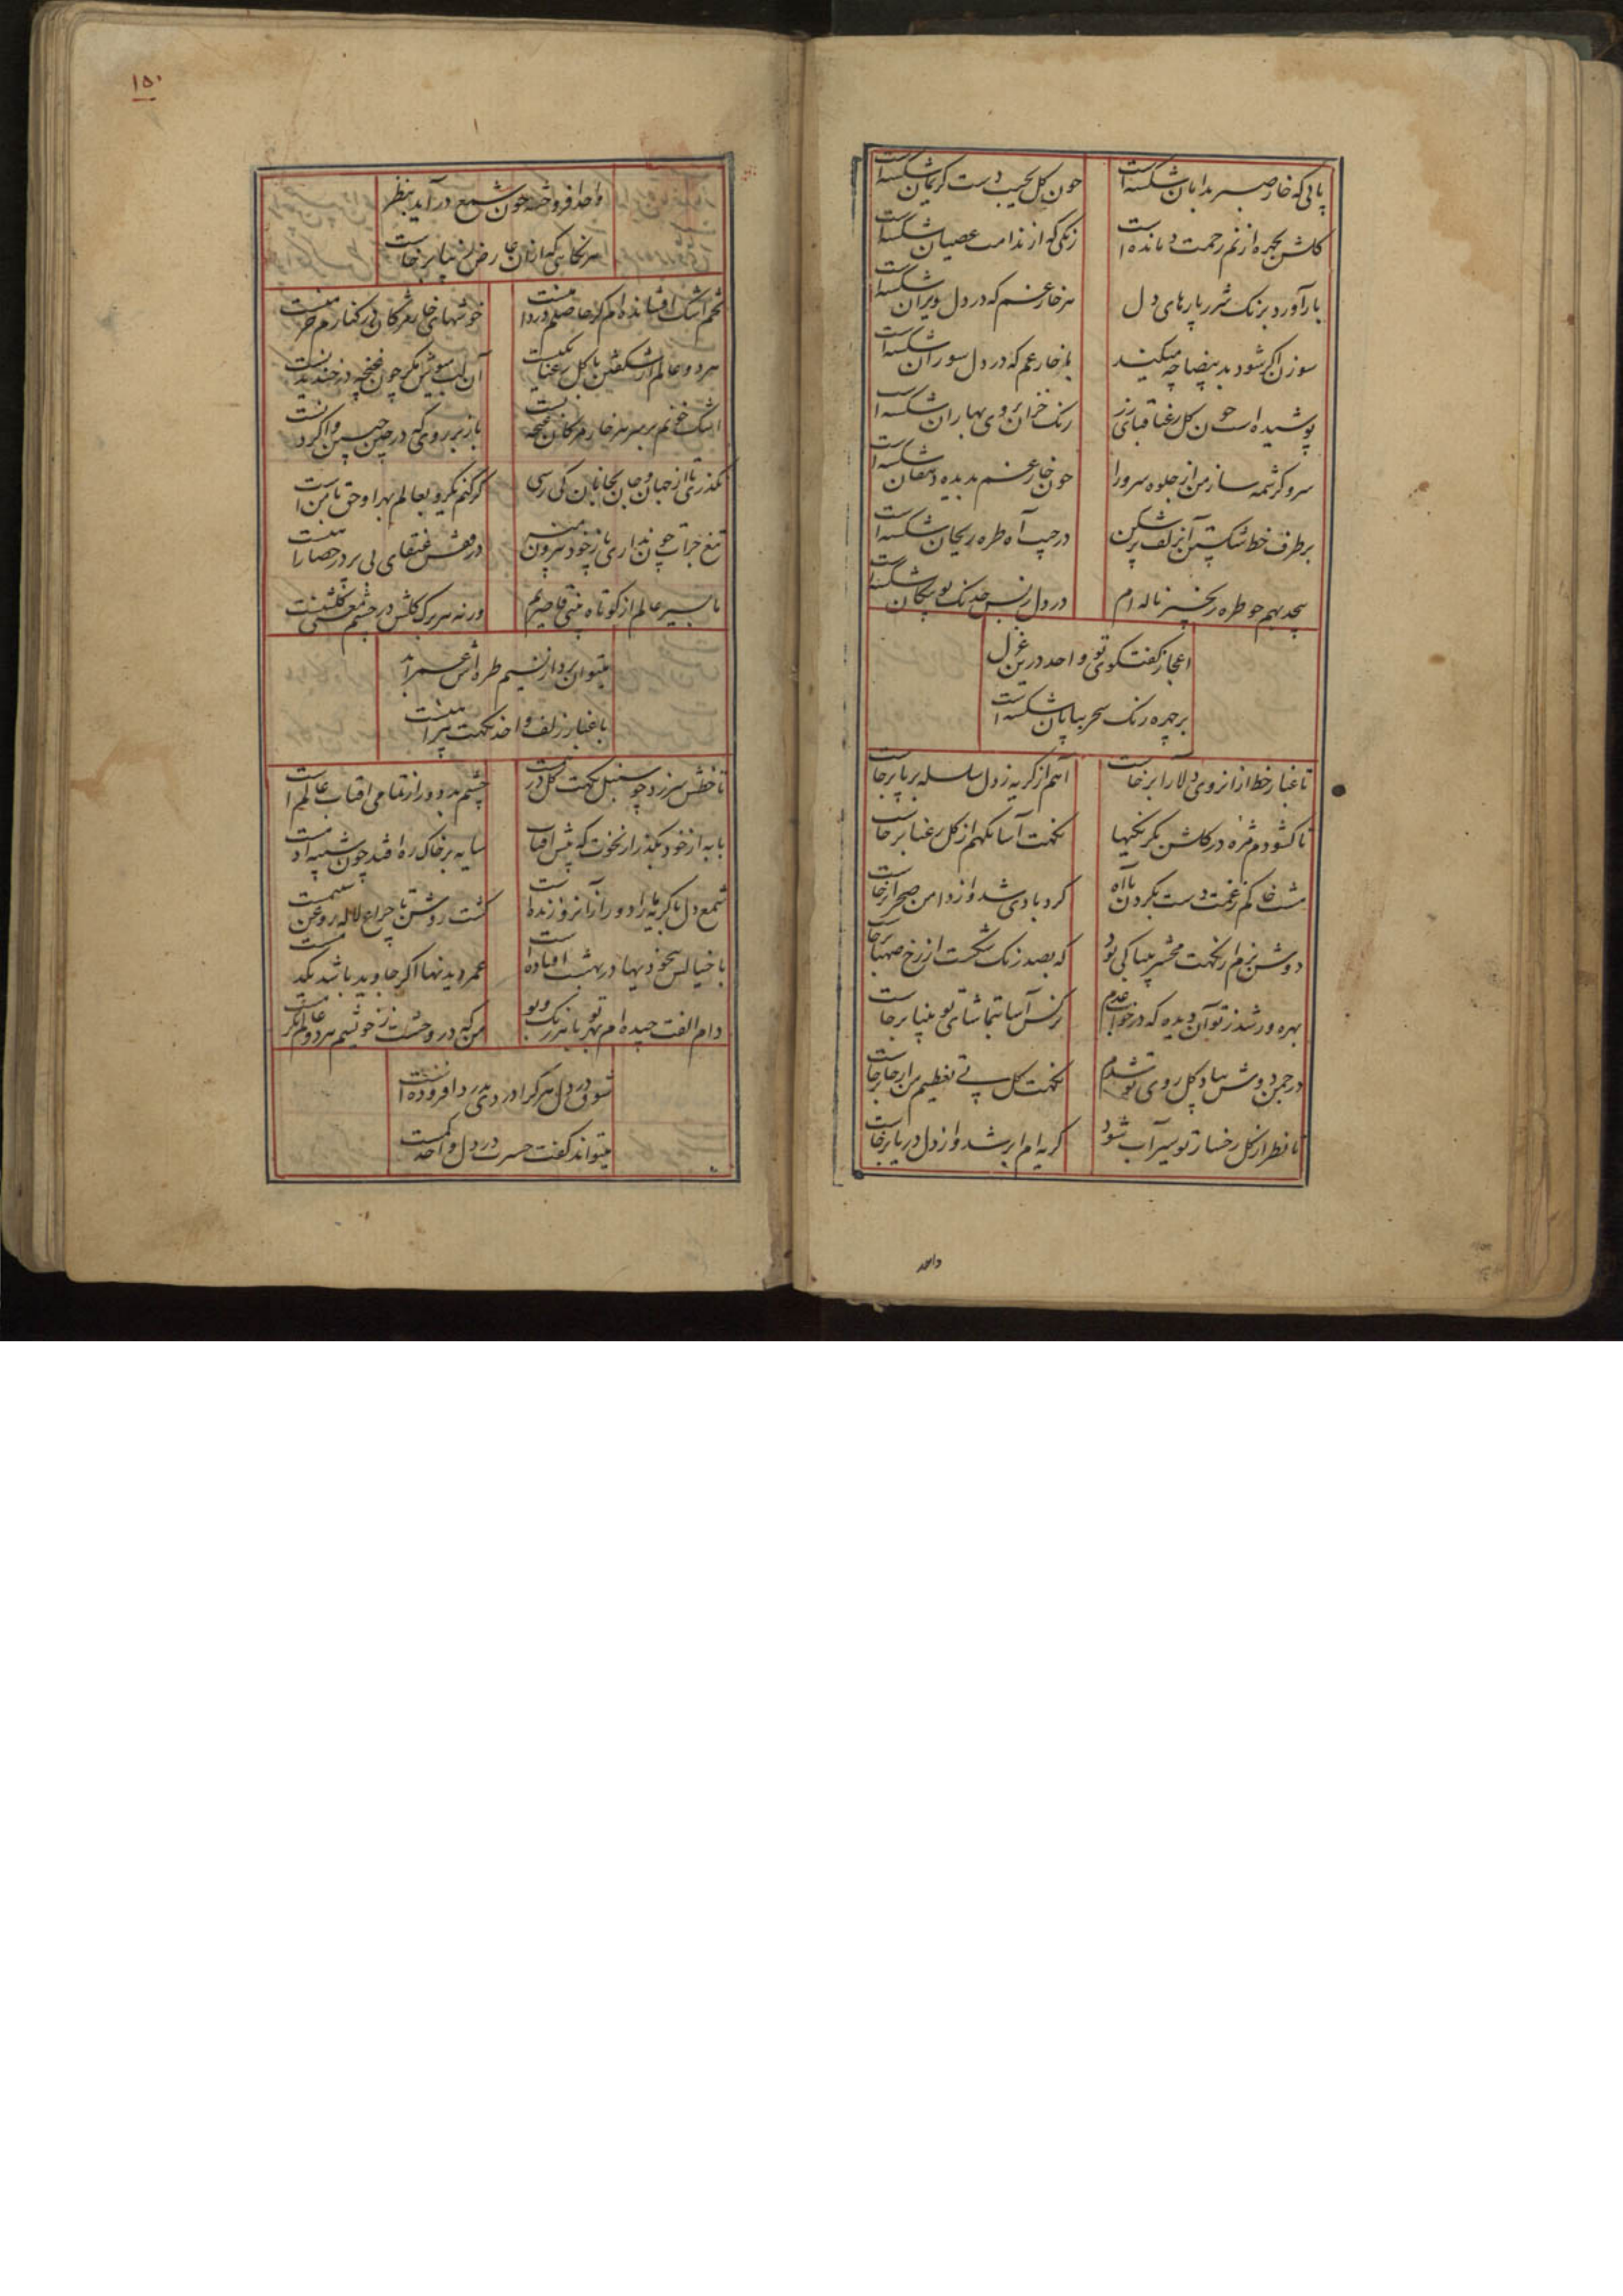 پائی که خار صبر بدامان شکسته است
چون گل بجیب دست کریمان شکسته است
گلشن بچهره از نم رحمت دمانده است
رنگی که از ندامت عصیان شکسته است
بار آورد برنگ شرر پارهای دل
هر خار غم که در دل ویران شکسته است
سوزن اگر شود ید بیضا چه میکند
با خار غم که در دل سوزان شکسته است
پوشیده است چون گل رعنا قبای زر
رنگ خزان بروی بهاران شکسته است
سرو کرشمه ساز من از جلوه سرو را
چون خار غم بدیده دهقان شکسته است
بر طرف خط شکستن آن زلف پر شکن
در جیب آه طره ریحان شکسته است
پیچد بهم چو طره زنجیر ناله ام
در دل ز بس خدنگ تو پیکان شکسته است
اعجاز گفتگوی تو واحد درین غزل
بر چهره رنگ سحر بیابان شکسته است
تا غبار خط از آن روی دلارا برخاست
آهم از گریه ز دل سلسله بر پا برخاست
تا گشودم مژه در گلشن یکرنگیها
نکهت آسا نگهم از گل رعنا برخاست
مشت خاکم ز غمت دست بگردن با آه
گردبادی شد و از دامن صحرا برخاست
دوش بزم از نکهت محشر مینا کی بود
که بصد رنگ شکست از رخ صهبا برخاست
بهره ور شد ز تو آن دیده که در خواب عدم
نرگس آسا بتماشای تو بینا برخاست
در چمن دوش بیاد گل روی تو شدم
نکهت گل پی تعظیم من از جا برخاست
تا نظر از گل رخسار تو سیراب شود
گریه ام ابر شد و از دل دریا برخاست
واحد
۱۵۰
واحد افروخته چون شمع در آید بنظر
هر نگاهی که از آن عارض زیبا برخاست
تخم اشک افشانده ام گر حاصلم درد است
خوشهای خار مژگان در کنارم خرمنست
هر دو عالم از شکفتن با گل رعنا یکیست
آن لب میگون مگر چون غنچه در خندیدنست
اشک خونم بر سر هر خار مژگان غنچه بست
باز بر روی که در چین جبین وا کردنست
نگذری تا از جهان و جان بجانان کی رسی
تیغ جرات چون نداری پا ز خود بیرون منه
در قفس عنقای بی پر در حصار آهنست
ما بسیر عالم از کوتاه بینی قاصریم
ورنه هر برگ گلش در چشم معنی گلشنست
میتوان برد از نسیم طره اش عمر ابد
با غبار زلف واحد نکهت پیراهنست
تا خطش سر زد چو سنبل نکهت گل درهمست
چشم بد دور از تمامی آفتاب عالم است
باید از خود بگذر از نخوت که پیش آفتاب
سایه بر خاک ره افتد چون شبیه آدمست
شمع دل با گریه ما را دور از آنرو زنده است
گشت روشن تا چراغ لاله روغن شبنمست
با خیالش بیخودیها در بهشت افتاده است
عمر دیدنها اگر جاوید باشد یکدمست
دام الفت چیده ام بهر تو با هر رنگ و بو
من که در وحشت ز خویشم هر دو عالم دیگرست
شوق در دل هر کرا دردی بدرد افزوده است
میتواند گفت حسرت درد دل واحد کمست